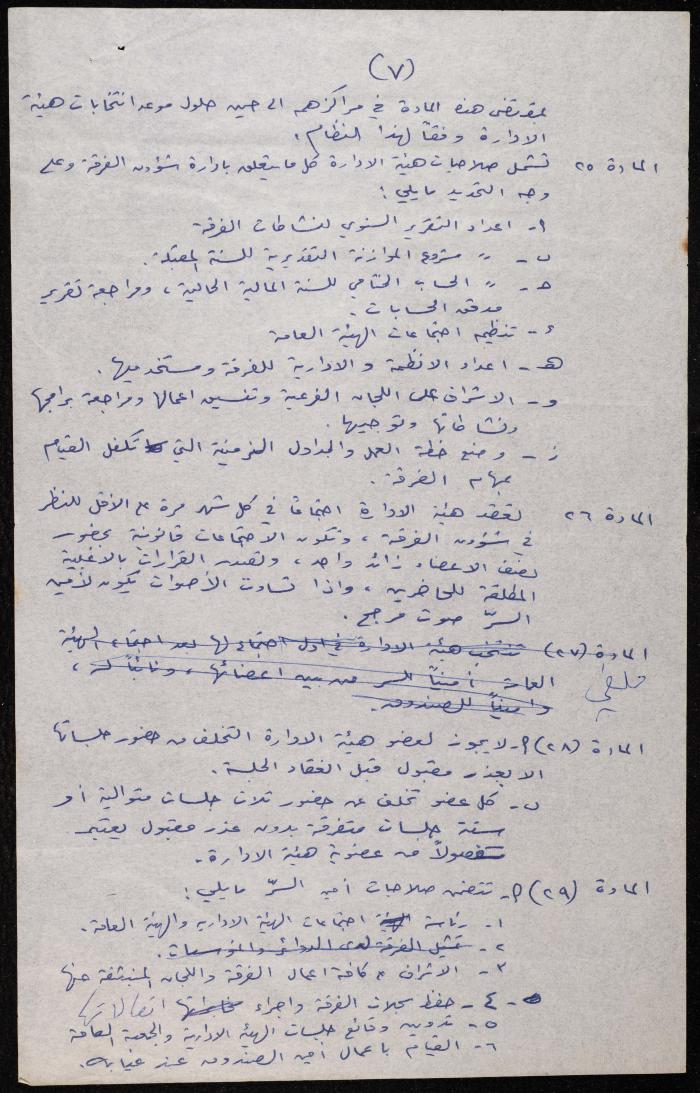 (٧)
بمقتضى هذه المادة في مراكزهم الى حين حلول موعد انتخابات هيئة
الادارة وفقاً لهذا النظام.
المادة ٢٥ تشمل صلاحيات هيئة الادارة كل ما يتعلق بادارة شؤون الفرقة وعلى
وجه التحديد ما يلي:
أ- اعداد التقرير السنوي لنشاطات الفرقة
ب- " مشروع الموازنة التقديرية للسنة المقبلة.
جـ- " الحساب الختامي للسنة المالية الحالية، ومراجعة تقرير
مدقق الحسابات.
د- تنظيم اجتماعات الهيئة العامة
هـ- اعداد الانظمة الادارية للفرقة ومستخدميها.
و- الاشراف على اللجان الفرعية وتنسيق اعمالها ومراجعة برامجها
ونشاطاتها وتوجيهها.
ز- وضع خطة العمل والجداول الزمنية التي تكفل القيام
بمهام الفرقة.
المادة ٢٦ تعقد هيئة الادارة اجتماعاً في كل شهر مرة على الأقل للنظر
في شؤون الفرقة، وتكون الاجتماعات قانونية بحضور
نصف الاعضاء زائد واحد، وتصدر القرارات بالاغلبية
المطلقة للحاضرين، واذا تساوت الأصوات يكون لأمين
السرّ صوت مرجح.
المادة (٢٧) تنتخب هيئة الادارة في اول اجتماع لها بعد اجتماع الهيئة
العامة أميناً للسر من بين اعضائها، ونائباً له،
وأميناً للصندوق.
المادة (٢٨) أ- لا يجوز لعضو هيئة الادارة التخلف عن حضور جلساتها
الا بعذر مقبول قبل انعقاد الجلسة.
ب- كل عضو تخلف عن حضور ثلاث جلسات متوالية أو
ستة جلسات متفرقة بدون عذر مقبول يعتبر
مفصولاً من عضوية هيئة الادارة.
المادة (٢٩) أ- تتضمن صلاحيات أمين السرّ ما يلي:
١- رئاسة اجتماعات الهيئة الادارية والهيئة العامة.
٢- تمثيل الفرقة لدى الدوائر والمؤسسات.
٣- الاشراف على كافة اعمال الفرقة واللجان المنبثقة عنها
٤- حفظ سجلات الفرقة واجراء مخابراتها اتصالاتها
٥- تدوين وقائع جلسات الهيئة الادارية والجمعية العامة
٦- القيام باعمال أمين الصندوق عند غيابه.